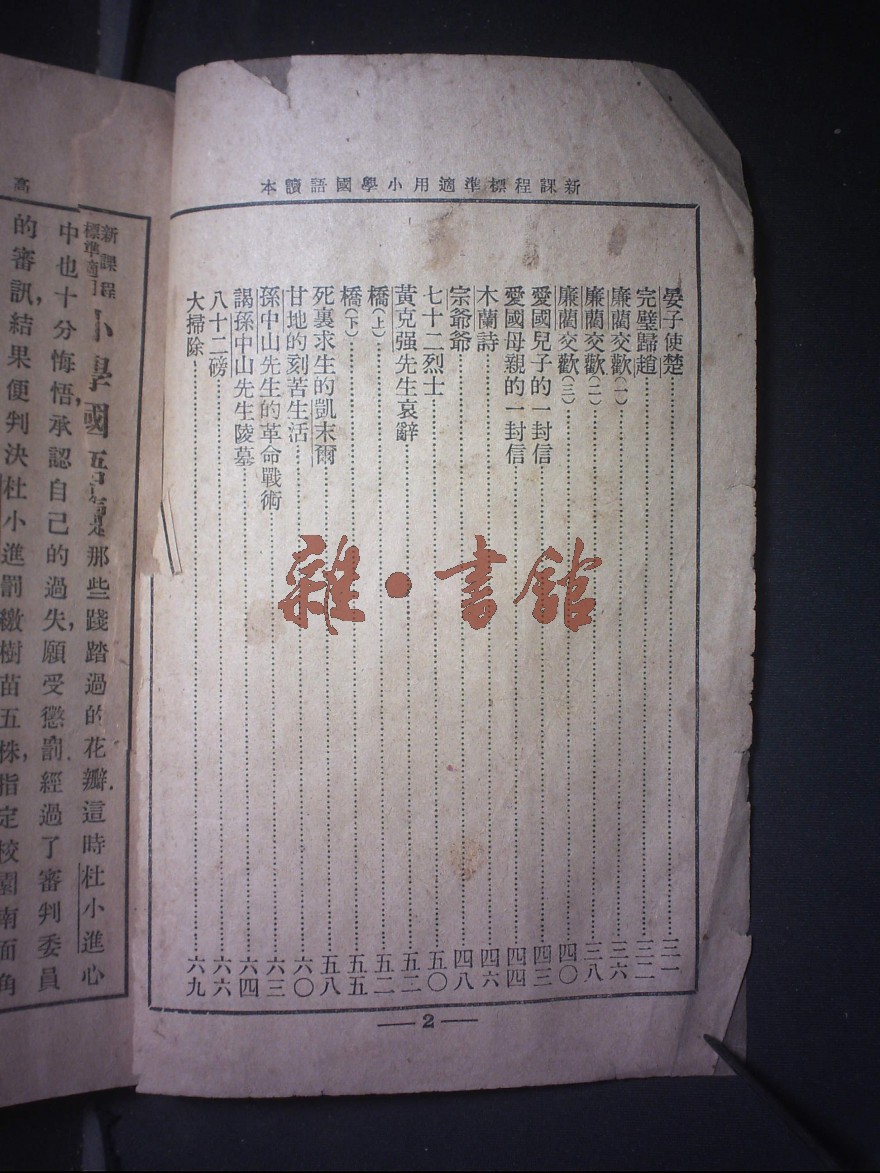 新課程標準適用小學國語讀本
晏子使楚……三一
完璧歸趙……三二
廉藺交歡(一)……三六
廉藺交歡(二)……三八
廉藺交歡(三)……四〇
愛國兒子的一封信……四三
愛國母親的一封信……四四
木蘭詩……四六
宗爺爺……四八
七十二烈士……五〇
黃克强先生哀辭……五二
橋(上)……五二
橋(下)……五五
死裏求生的凱末爾……五八
甘地的刻苦生活……六〇
孫中山先生的革命戰術……六三
謁孫中山先生陵墓……六四
八十二磅……六六
大掃除……六九
2
雜·書館
高
新課程標準適用
小學國語
那些踐踏過的花瓣這時杜小進心
中也十分悔悟,承認自己的過失,願受懲罰經過了審判委員
的審訊,結果便判決杜小進罰繳樹苗五株,指定校園南面角